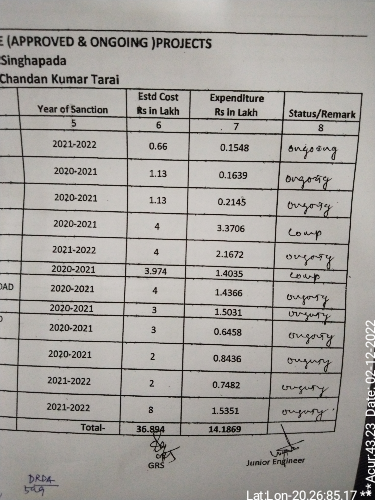 E (APPROVED & ONGOING )PROJECTS
Singhapada
Chandan Kumar Tarai
Year of Sanction Estd Cost Rs in Lakh Expenditure Rs in Lakh Status/Remark
5 6 7 8
2021-2022 0.66 0.1548 ongoing
2020-2021 1.13 0.1639 ongoing
2020-2021 1.13 0.2145 ongoing
2020-2021 4 3.3706 Comp
2021-2022 4 2.1672 ongoing
2020-2021 3.974 1.4035 Comp
OAD 2020-2021 4 1.4366 ongoing
2020-2021 3 1.5031 ongoing
2020-2021 3 0.6458 ongoing
2020-2021 2 0.8436 ongoing
2021-2022 2 0.7482 ongoing
2021-2022 8 1.5351 ongoing
Total- 36.894 14.1869
GRS
Junior Engineer
DRDA
599
Lat:Lon-20.26:85.17 *** Acur:43.23 Date-02-12-2022